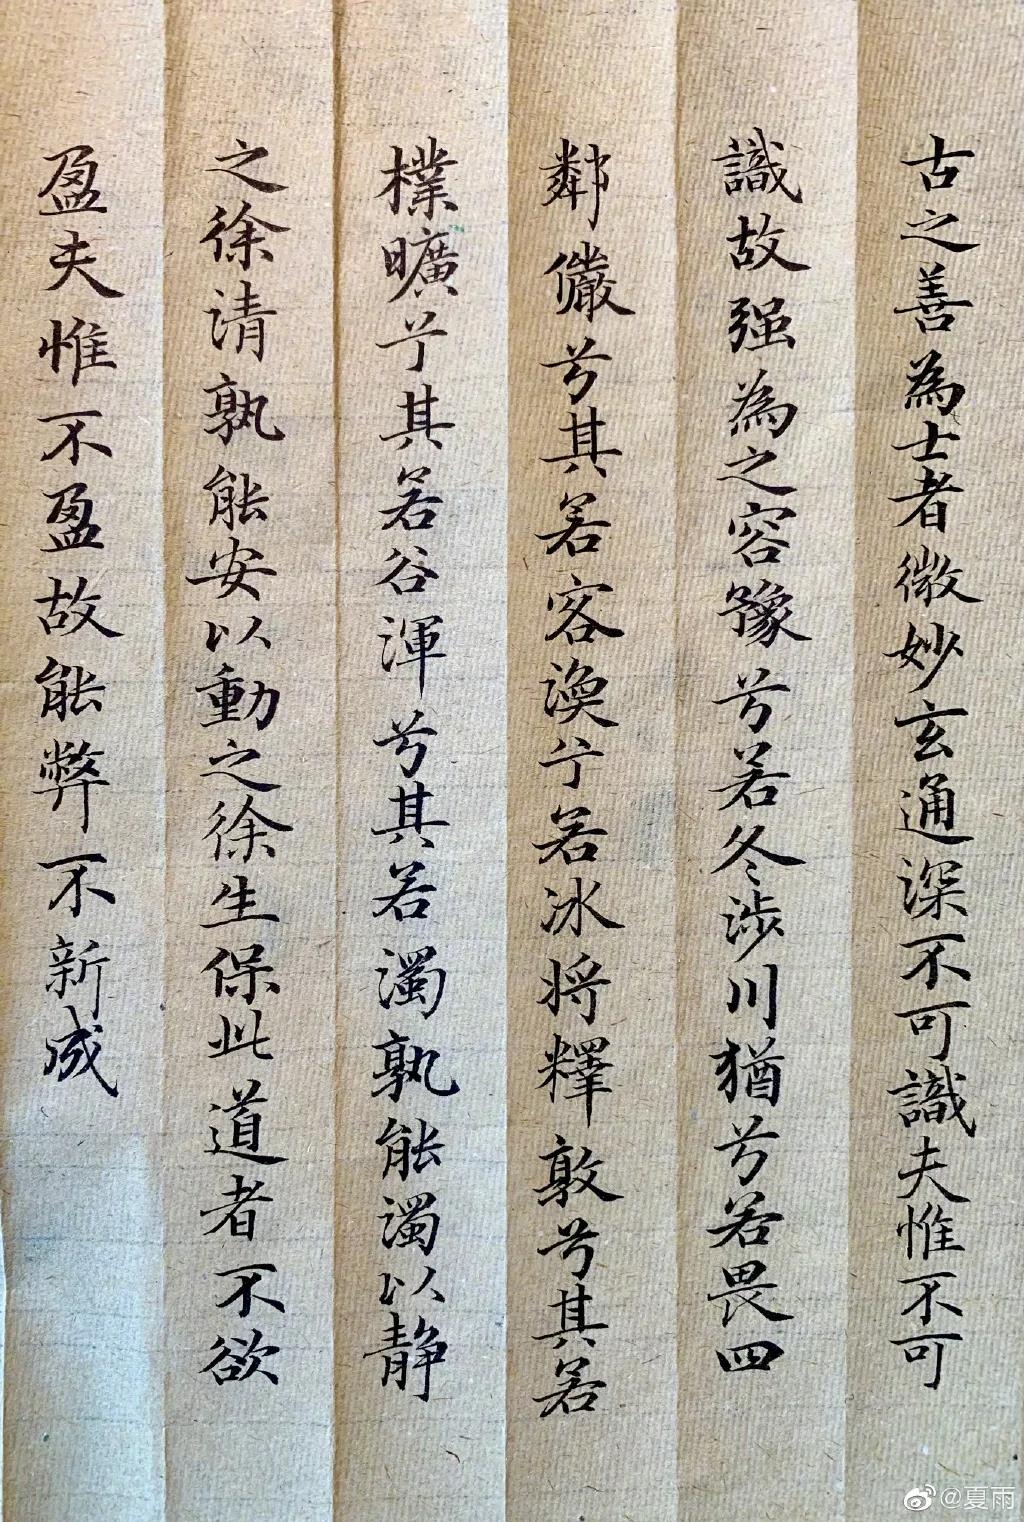 古之善為士者微妙玄通深不可識夫惟不可
識故强為之容豫兮若冬涉川猶兮若畏四
鄰儼兮其若客渙兮若冰將釋敦兮其若
樸曠兮其若谷渾兮其若濁孰能濁以静
之徐清孰能安以動之徐生保此道者不欲
盈夫惟不盈故能弊不新成
@夏雨